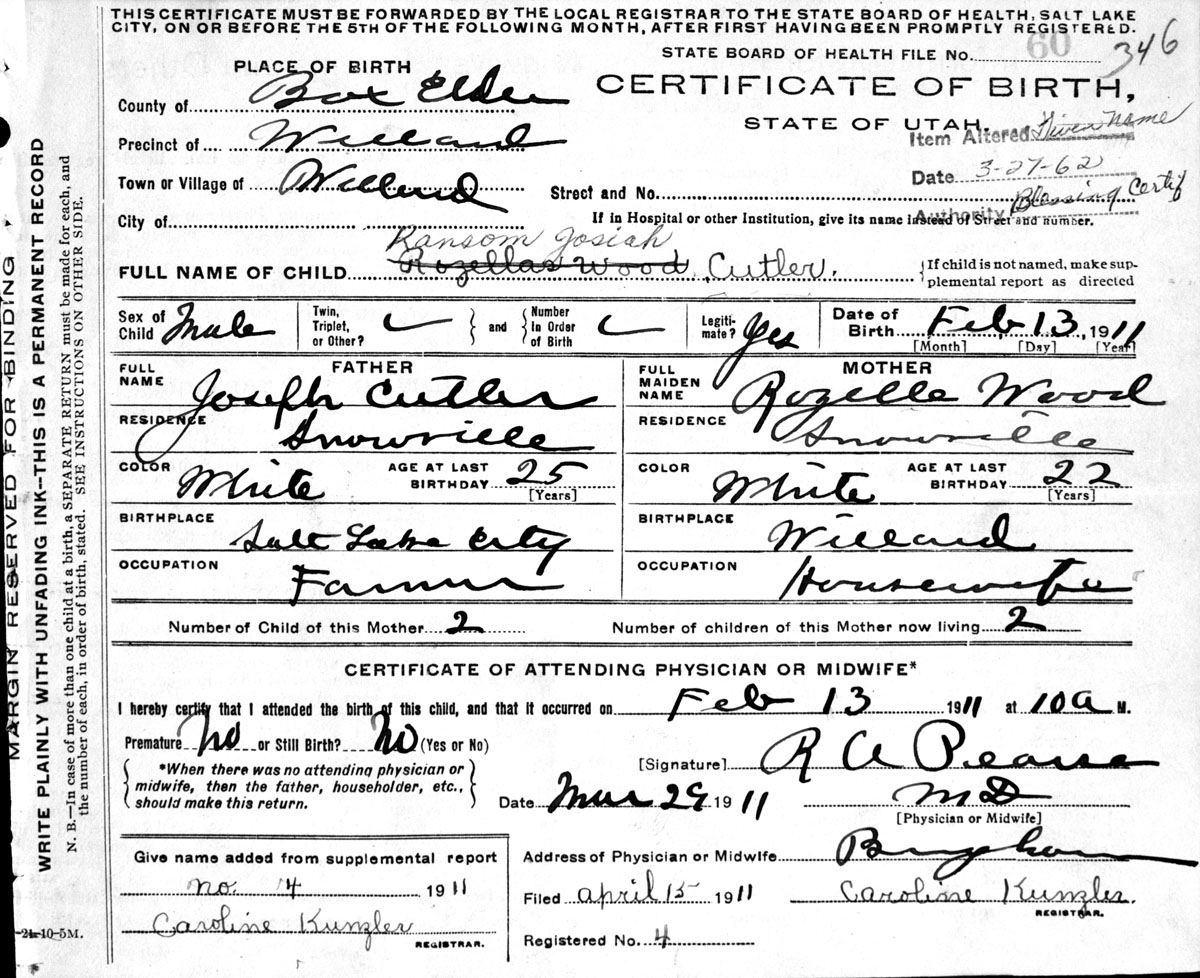 THIS CERTIFICATE MUST BE FORWARDED BY THE LOCAL REGISTRAR TO THE STATE BOARD OF HEALTH, SALT LAKE
CITY, ON OR BEFORE THE 5TH OF THE FOLLOWING MONTH, AFTER FIRST HAVING BEEN PROMPTLY REGISTERED.
STATE BOARD OF HEALTH FILE No. 60 346
PLACE OF BIRTH
CERTIFICATE OF BIRTH,
County of Box Elder
STATE OF UTAH
Item Altered Given Name
Precinct of Willard
Date 3-27-62
Town or Village of Willard
Street and No.
Authority Blessing Certif
City of
If in Hospital or other Institution, give its name instead of Street and number.
Ransom Josiah
FULL NAME OF CHILD Rozellas Wood Cutler.
If child is not named, make sup-
plemental report as directed
Sex of Child Male
Twin, Triplet, or Other?
and
Number In Order of Birth
Legiti-mate? Yes
Date of Birth Feb 13, 1911
[Month] [Day] [Year]
FATHER
FULL NAME Joseph Cutler
RESIDENCE Snowville
COLOR White AGE AT LAST BIRTHDAY 25
[Years]
BIRTHPLACE Salt Lake City
OCCUPATION Farmer
MOTHER
FULL MAIDEN NAME Rozelle Wood
RESIDENCE Snowville
COLOR White AGE AT LAST BIRTHDAY 22
[Years]
BIRTHPLACE Willard
OCCUPATION Housewife
Number of Child of this Mother 2
Number of children of this Mother now living 2
CERTIFICATE OF ATTENDING PHYSICIAN OR MIDWIFE*
I hereby certify that I attended the birth of this child, and that it occurred on Feb 13 1911 at 10a M.
Premature No or Still Birth? No (Yes or No)
*When there was no attending physician or
midwife, then the father, householder, etc.,
should make this return.
[Signature] R A Pearse
Date Mar 29 1911
MD
[Physician or Midwife]
Give name added from supplemental report
no. 4 1911
Caroline Kunzler
REGISTRAR.
Address of Physician or Midwife Brigham
Filed April 15 1911 Caroline Kunzler.
REGISTRAR.
Registered No. 4
-24-10-5M.
MARGIN RESERVED FOR BINDING
WRITE PLAINLY WITH UNFADING INK--THIS IS A PERMANENT RECORD
N. B.—In case of more than one child at a birth, a SEPARATE RETURN must be made for each, and
the number of each, in order of birth, stated. SEE INSTRUCTIONS ON OTHER SIDE.